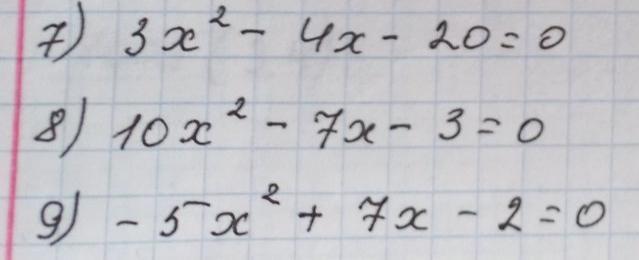 7) 3x² - 4x - 20 = 0
8) 10x² - 7x - 3 = 0
9) -5x² + 7x - 2 = 0